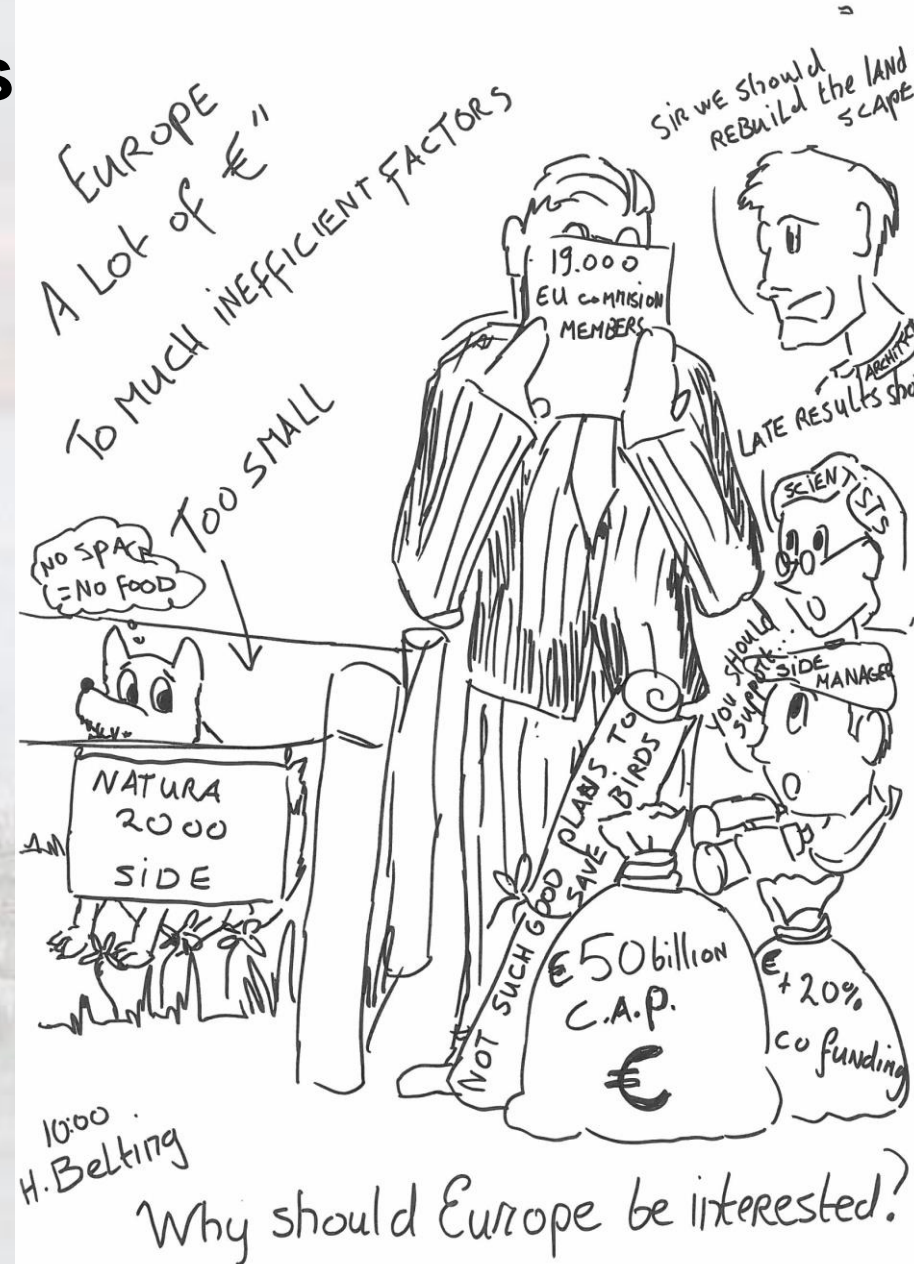 s
EUROPE
A LOT OF €"
TO MUCH INEFFICIENT FACTORS
TOO SMALL
NO SPACE
=NO FOOD
NATURA
2000
SIDE
19.000
EU COMMISION
MEMBERS
SIR WE SHOULD
REBUILD the LAND
SCAPE
LATE RESULTS
SCIENTISTS
YOU SHOULD
SUPPORT...
SIDE
MANAGER
NOT SUCH GOOD PLANS TO
SAVE BIRDS
€50 billion
C.A.P.
€
€
+20%
co funding
10:00
H. Belting
Why should Europe be interested?